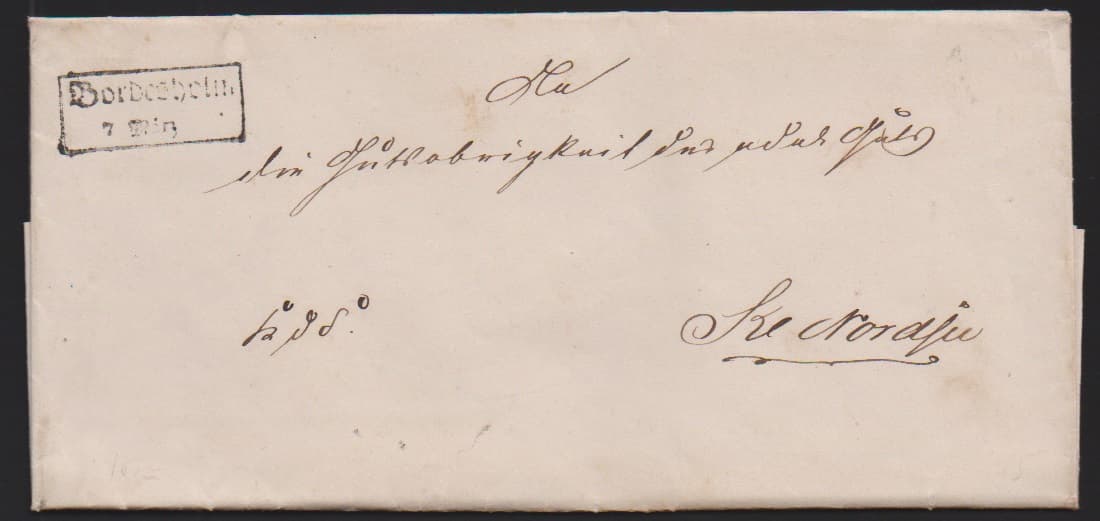 Bordesholm
7 März
An
die Gutsobrigkeit des adel. Guts
Kl Nordsee